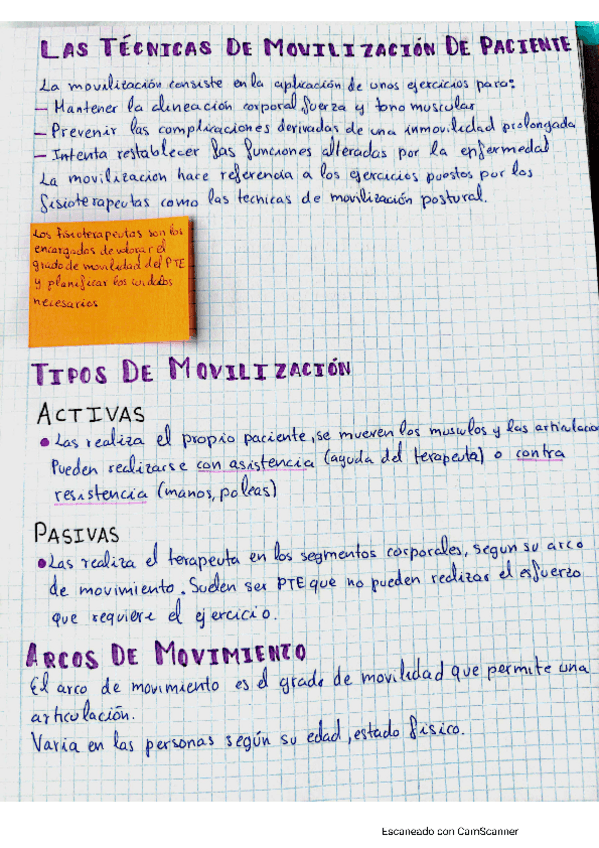 LAS TÉCNICAS DE MOVILIZACIÓN DE PACIENTE
La movilización consiste en la aplicación de unos ejercicios para:
– Mantener la alineación corporal, fuerza y tono muscular
– Prevenir las complicaciones derivadas de una inmovilidad prolongada
– Intenta restablecer las funciones alteradas por la enfermedad
La movilizacion hace referencia a los ejercicios puestos por los
fisioterapeutas como las tecnicas de movilización postural.
Los fisioterapeutas son los
encargados de valorar el
grado de movilidad del PTE
y planificar los cuidados
necesarios
TIPOS DE MOVILIZACIÓN
ACTIVAS
• Las realiza el propio paciente, se mueven los musculos y las articulacio
Pueden realizarse con asistencia (ayuda del terapeuta) o contra
resistencia (manos, poleas)
PASIVAS
• Las realiza el terapeuta en los segmentos corporales, segun su arco
de movimiento. Suelen ser PTE que no pueden realizar el esfuerzo
que requiere el ejercicio.
ARCOS DE MOVIMIENTO
El arco de movimiento es el grado de movilidad que permite una
articulación.
Varia en las personas según su edad, estado fisico.
Escaneado con CamScanner